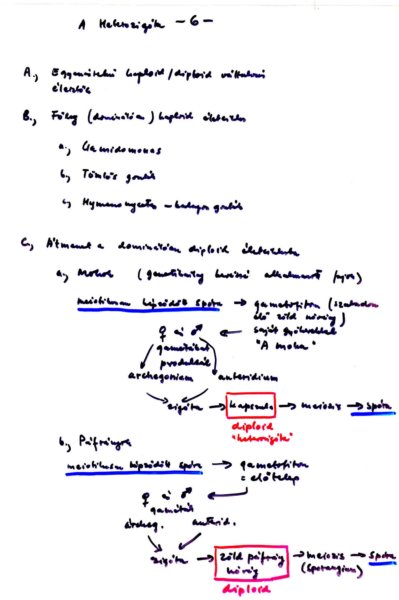 A Heterozigóta - 6 -
A., Egyenértékű haploid/diploid váltakozó
életciklus
B., Főleg (domináns) haploid életciklus
a., Clamidomonas
b., Tömlős gombák
c., Hymenomycetes - kalapos gombák
C., Átmenet a dominánsan diploid életciklusba
a., Mohok (genetikailag keresésre alkalmas)
meiotikusan képződött spóra → gametofiton (szabadon
élő zöld növény)
♀ és ♂ ← saját gyökerekkel
gamétákat "A moha"
produkál
archegonium anteridium
zigóta → kapszula → meiozis → spóra
diploid
"heterozigóta"
b., Páfrányok
meiotikusan képződött spóra → gametofiton
= előtelep
♀ és ♂
gaméták
archeg. anterid.
zigóta → zöld páfrány → meiozis → spóra
növény (sporangium)
diploid